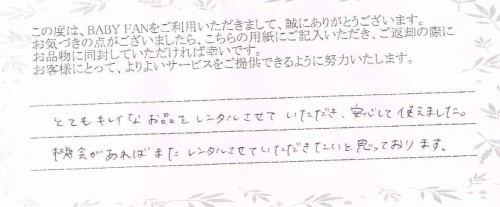 この度は、BABY FANをご利用いただきまして、誠にありがとうございます。
お気づきの点がございましたら、こちらの用紙にご記入いただき、ご返却の際に
お品物に同封していただければ幸いです。
お客様にとって、よりよいサービスをご提供できるように努力いたします。
とてもキレイなお品をレンタルさせていただき、安心して使えました。
機会があればまたレンタルさせていただきたいと思っております。